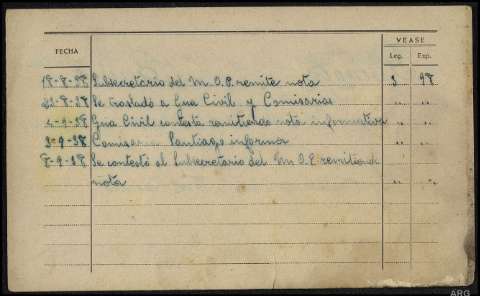 VEASE
FECHA Leg. Exp.
18-8-38 Subsecretario del M.O.P. remite nota 3 98
22-8-38 Se trasladó a Gua Civil y Comisarios " "
2-9-38 Gua Civil contestó remitiendo nota informativa " "
3-9-38 Comisario Santiago informa " "
8-9-38 Se contestó al Subsecretario del M.O.P. remitiendo
nota " "
ARG